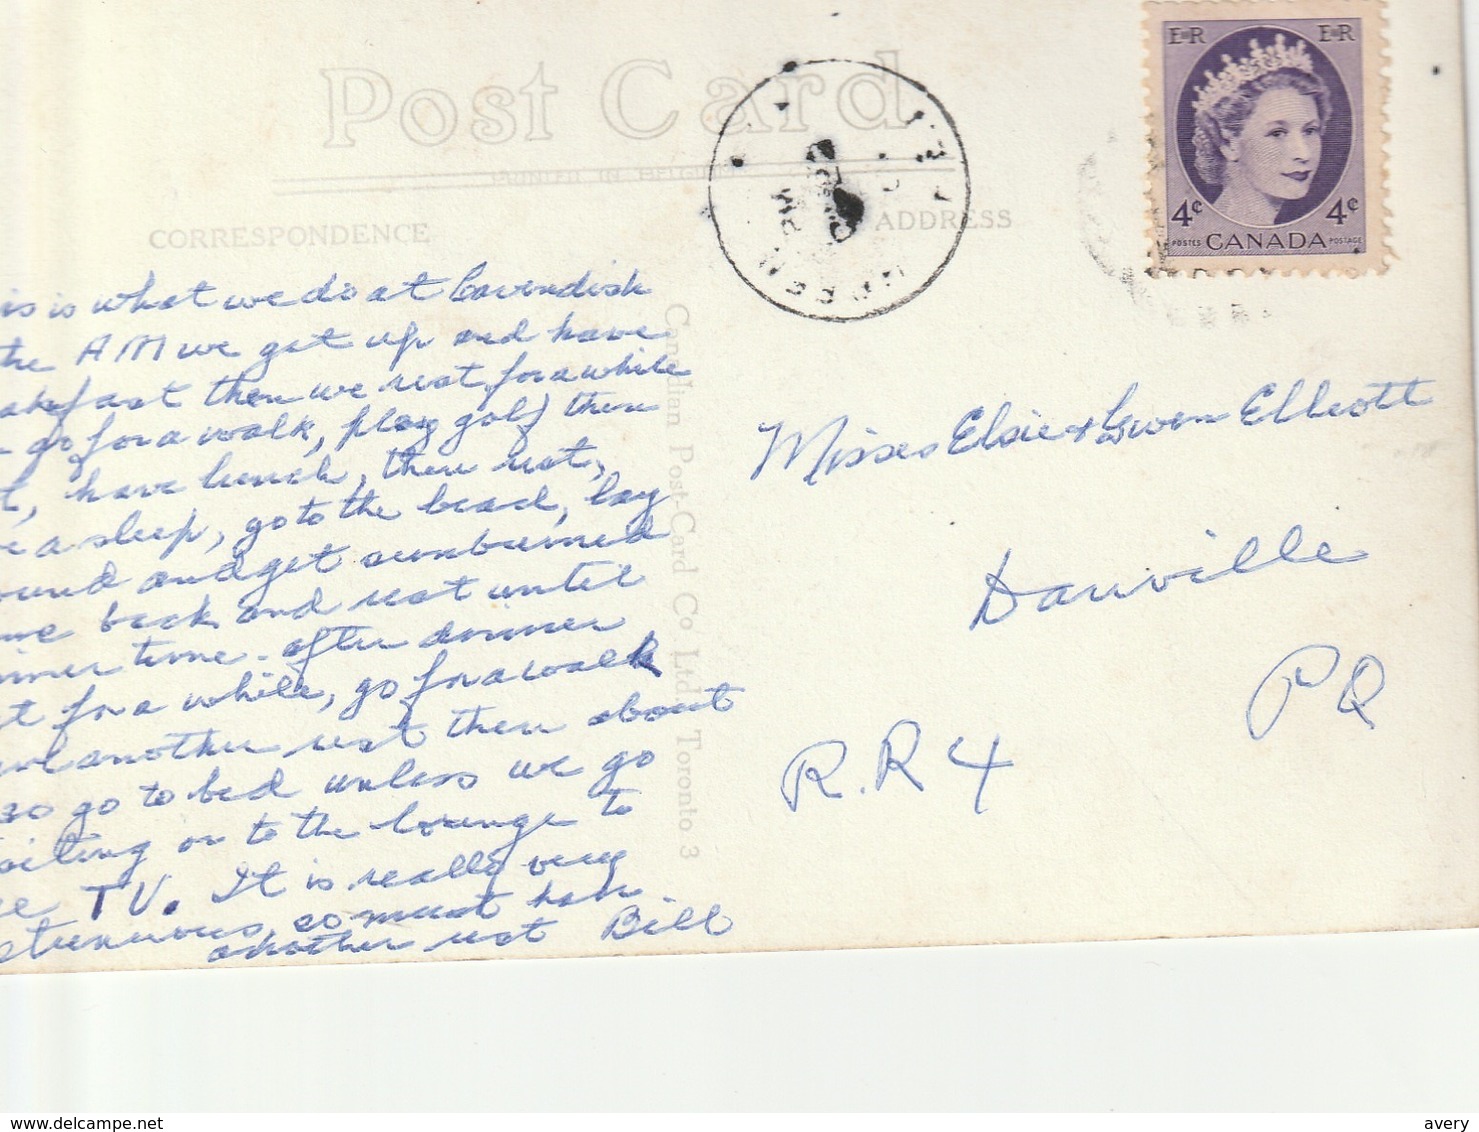 Post Card
PRINTED IN BELGIUM
CORRESPONDENCE
ADDRESS
E R
E R
4¢
4¢
POSTES CANADA POSTAGE
is is what we do at Cavendish
the AM we get up and have
akefast then we rest for a while
go for a walk, play golf then
t, have lunch, then rest,
e a sleep, go to the beach, lay
ound and get sunburned
me back and rest until
inner time - after dinner
st for a while, go for a walk
another rest then about
30 go to bed unless we go
or to the lounge to
TV. It is really very
strenuous, so must have
another rest Bill
Canadian Post-Card Co Ltd Toronto 3
Misses Elsie & Gwen Elliott
Danville
PQ
R.R 4
delcampe.net
avery